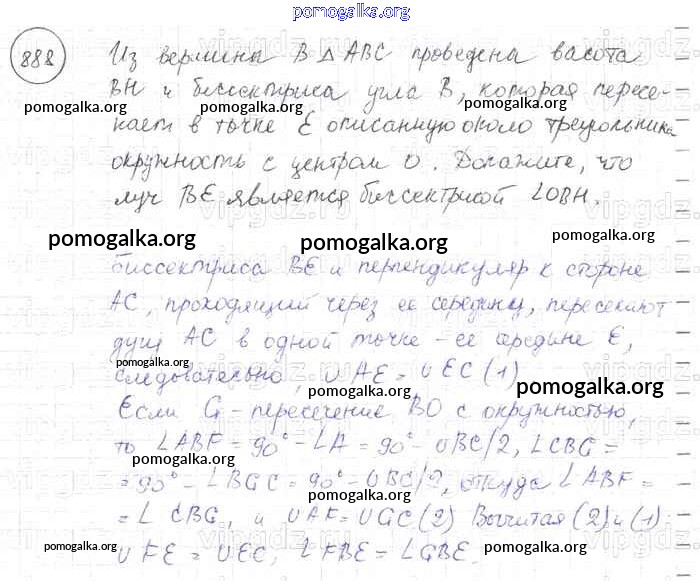 pomogalka.org
888 Из вершины B △ABC проведена васота
BH и биссектриса угла B, которая пересе-
pomogalka.org pomogalka.org pomogalka.org
кает в точке E описанную около треугольника
окружность с центром O. Докажите, что
луч BE является биссектрисой ∠OBH.
pomogalka.org pomogalka.org pomogalka.org
биссектриса BE и перпендикуляр к стороне
AC, проходящий через ее середину, пересекают
дугу AC в одной точке - ее середине E,
pomogalka.org
следовательно, ∪AE = ∪EC (1)
pomogalka.org pomogalka.org
Если G - пересечение BO с окружностью,
то ∠ABF = 90° - ∠A = 90° - ∪BC/2, ∠CBG =
pomogalka.org
= 90° - ∠BGC = 90° - ∪BC/2, откуда ∠ABF =
pomogalka.org
= ∠CBG, и ∪AF = ∪GC (2) Вычитая (2) и (1)
pomogalka.org pomogalka.org pomogalka.org
∪FE = ∪EC, ∠FBE = ∠GBE.